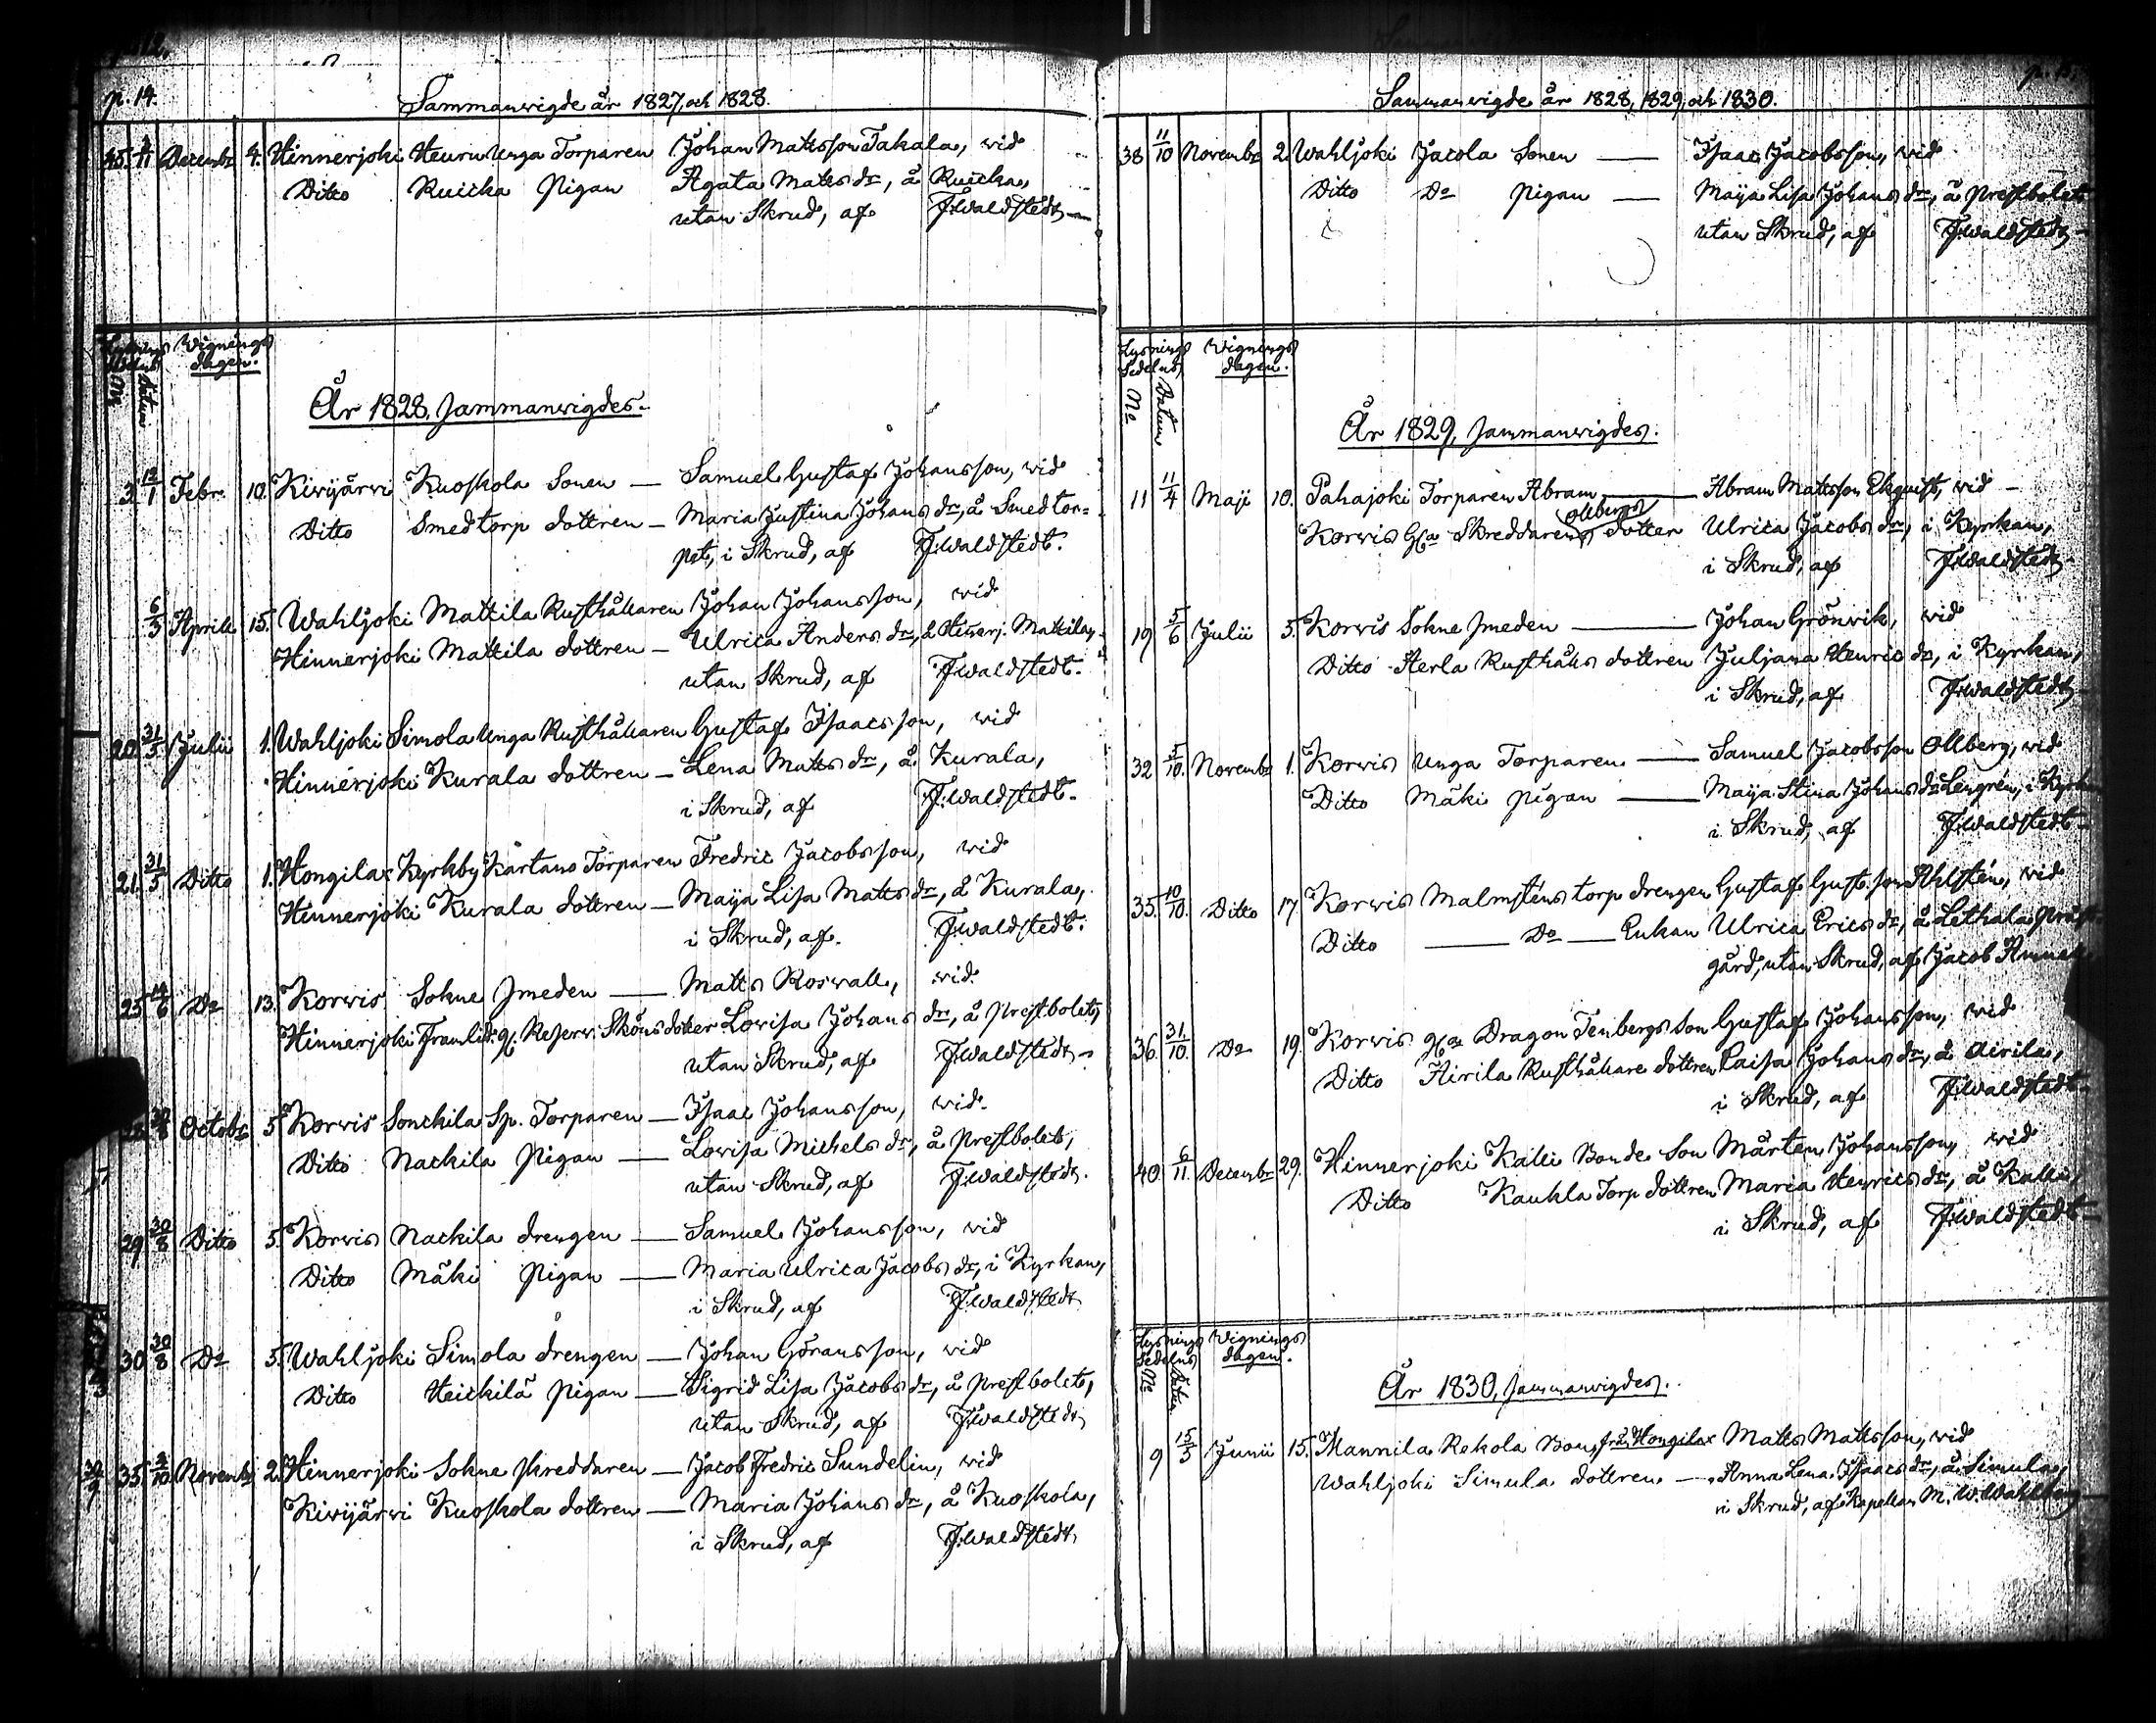 p. 14.
Sammanvigde år 1827, och 1828.
45. 4/11 Decembr 4. Hinnerjoki Heuru Unga Torparen Johan Mattsson Takala, wid
Ditto Ruicka Pigan Agata Matts dr, å Ruicka,
utan Skrud, af F. Waldstedt
Lysnings Sedelns Wignings dagen.
No Datum
År 1828, Sammanvigdes.
3. 12/1 Febr. 10. Kivijärvi Kuoskola Sonen — Samuel Gustaf Johansson, wid
Ditto Smedtorp dottren — Maria Justina Johans dr, å Smedtor=
pet, i Skrud, af F. Waldstedt.
6/3 Aprill 15. Wahljoki Mattila Rusthållaren Johan Johansson, wid
Hinnerjoki Mattila dottren — Ulrica Anders dr, å Hinerj. Mattila,
utan Skrud, af F. Waldstedt.
20. 31/5 Julii 1. Wahljoki Simola Unga Rusthållaren Gustaf Isaacsson, wid
Hinnerjoki Kurala dottren — Lena Matts dr, å Kurala,
i Skrud, af F. Waldstedt.
21. 31/5 Ditto 1. Hongilax Kyrkby Kartano Torparen Fredric Jacobsson, wid
Hinnerjoki Kurala dottren — Maija Lisa Matts dr, å Kurala,
i Skrud, af F. Waldstedt.
25 14/6 Do 13. Korwis Sokne Smeden — Matts Roswall, wid
Hinnerjoki Framlid. gl. Reserv. Sköns dotter Lovisa Johans dr, å Prestbolet,
utan Skrud, af F. Waldstedt
28 30/8 Octobr 5 Korwis Sonckila Sp. Torparen — Isaac Johansson, wid
Ditto Nackila Pigan — Lovisa Michels dr, å Prestbolet,
utan Skrud, af F. Waldstedt.
29 30/8 Ditto 5. Korwis Nackila drengen — Samuel Johansson, wid
Ditto Mäki Pigan — Maria Ulrica Jacobs dr, i Kyrkan,
i Skrud, af F. Waldstedt
30 30/8 Do 5. Wahljoki Simola drengen — Johan Göransson, wid
Ditto Heickilä Pigan — Sigrid Lisa Jacobs dr, å Prestbolet,
utan Skrud, af F. Waldstedt
35. 2/10 Novembr 2. Hinnerjoki Sokne Skreddaren — Jacob Fredric Sundelin, wid
Kivijärvi Kuoskola dottren — Maria Johans dr, å Kuoskola,
i Skrud, af F. Waldstedt
p. 15.
Sammanvigde år 1828, 1829, och 1830.
38 11/10 Novembr 2. Wahljoki Jacola Sonen — Isaac Jacobsson, wid
Ditto Do Pigan — Maija Lisa Johans dr, å Prestbolet
utan Skrud, af F. Waldstedt
Lysnings Sedelns Wignings dagen.
No Datum
År 1829, Sammanvigdes.
11 11/4 Maji 10. Pahajoki Torparen Abram — Abram Mattsson Ekqvist, wid
Ollbergs
Korwis Gla Skreddarens dotter Ulrica Jacobs dr, i Kyrkan,
i Skrud, af F. Waldstedt
19 5/6 Julii 5. Korwis Sokne Smeden — Johan Grönvik, wid
Ditto Herla Rusthålls dottren Juljana Henrics dr, i Kyrkan,
i Skrud, af F. Waldstedt
32 5/10. Novembr 1. Korwis Unga Torparen — Samuel Jacobsson Ollberg, wid
Ditto Mäki Pigan — Maija Stina Johans dr Lengrén, i Kyrk
i Skrud, af F. Waldstedt
35. 10/10. Ditto 17. Korwis Malmsténs torp drengen Gustaf Gust. son Ahlstén, wid
Ditto — Do — Enkan Ulrica Erics dr, å Lethala Präst
gård, utan Skrud, af Jacob
36. 31/10. Do 19. Korwis gla Dragon Tenbergs Son Gustaf Johansson, wid
Ditto Airila Rusthållare dottren Caisa Johans dr, å Airila,
i Skrud, af F. Waldstedt
40. 6/11. Decembr 29. Hinnerjoki Kalli Bonde Son Mårten Johansson, wid
Ditto Kauhla Torp dottren Maria Henrics dr, å Kalli,
i Skrud, af F. Waldstedt
Lysnings Sedelns Wignings dagen.
No Datum
År 1830, Sammanvigdes.
9 15/3 Junii 15. Mannila Rekola Bon, frå Hongilax Matts Mattsson, wid
Wahljoki Simula dottren — Anna Lena Isaacs dr, å Simula,
i Skrud, af Kapellan M. W. Wahlberg